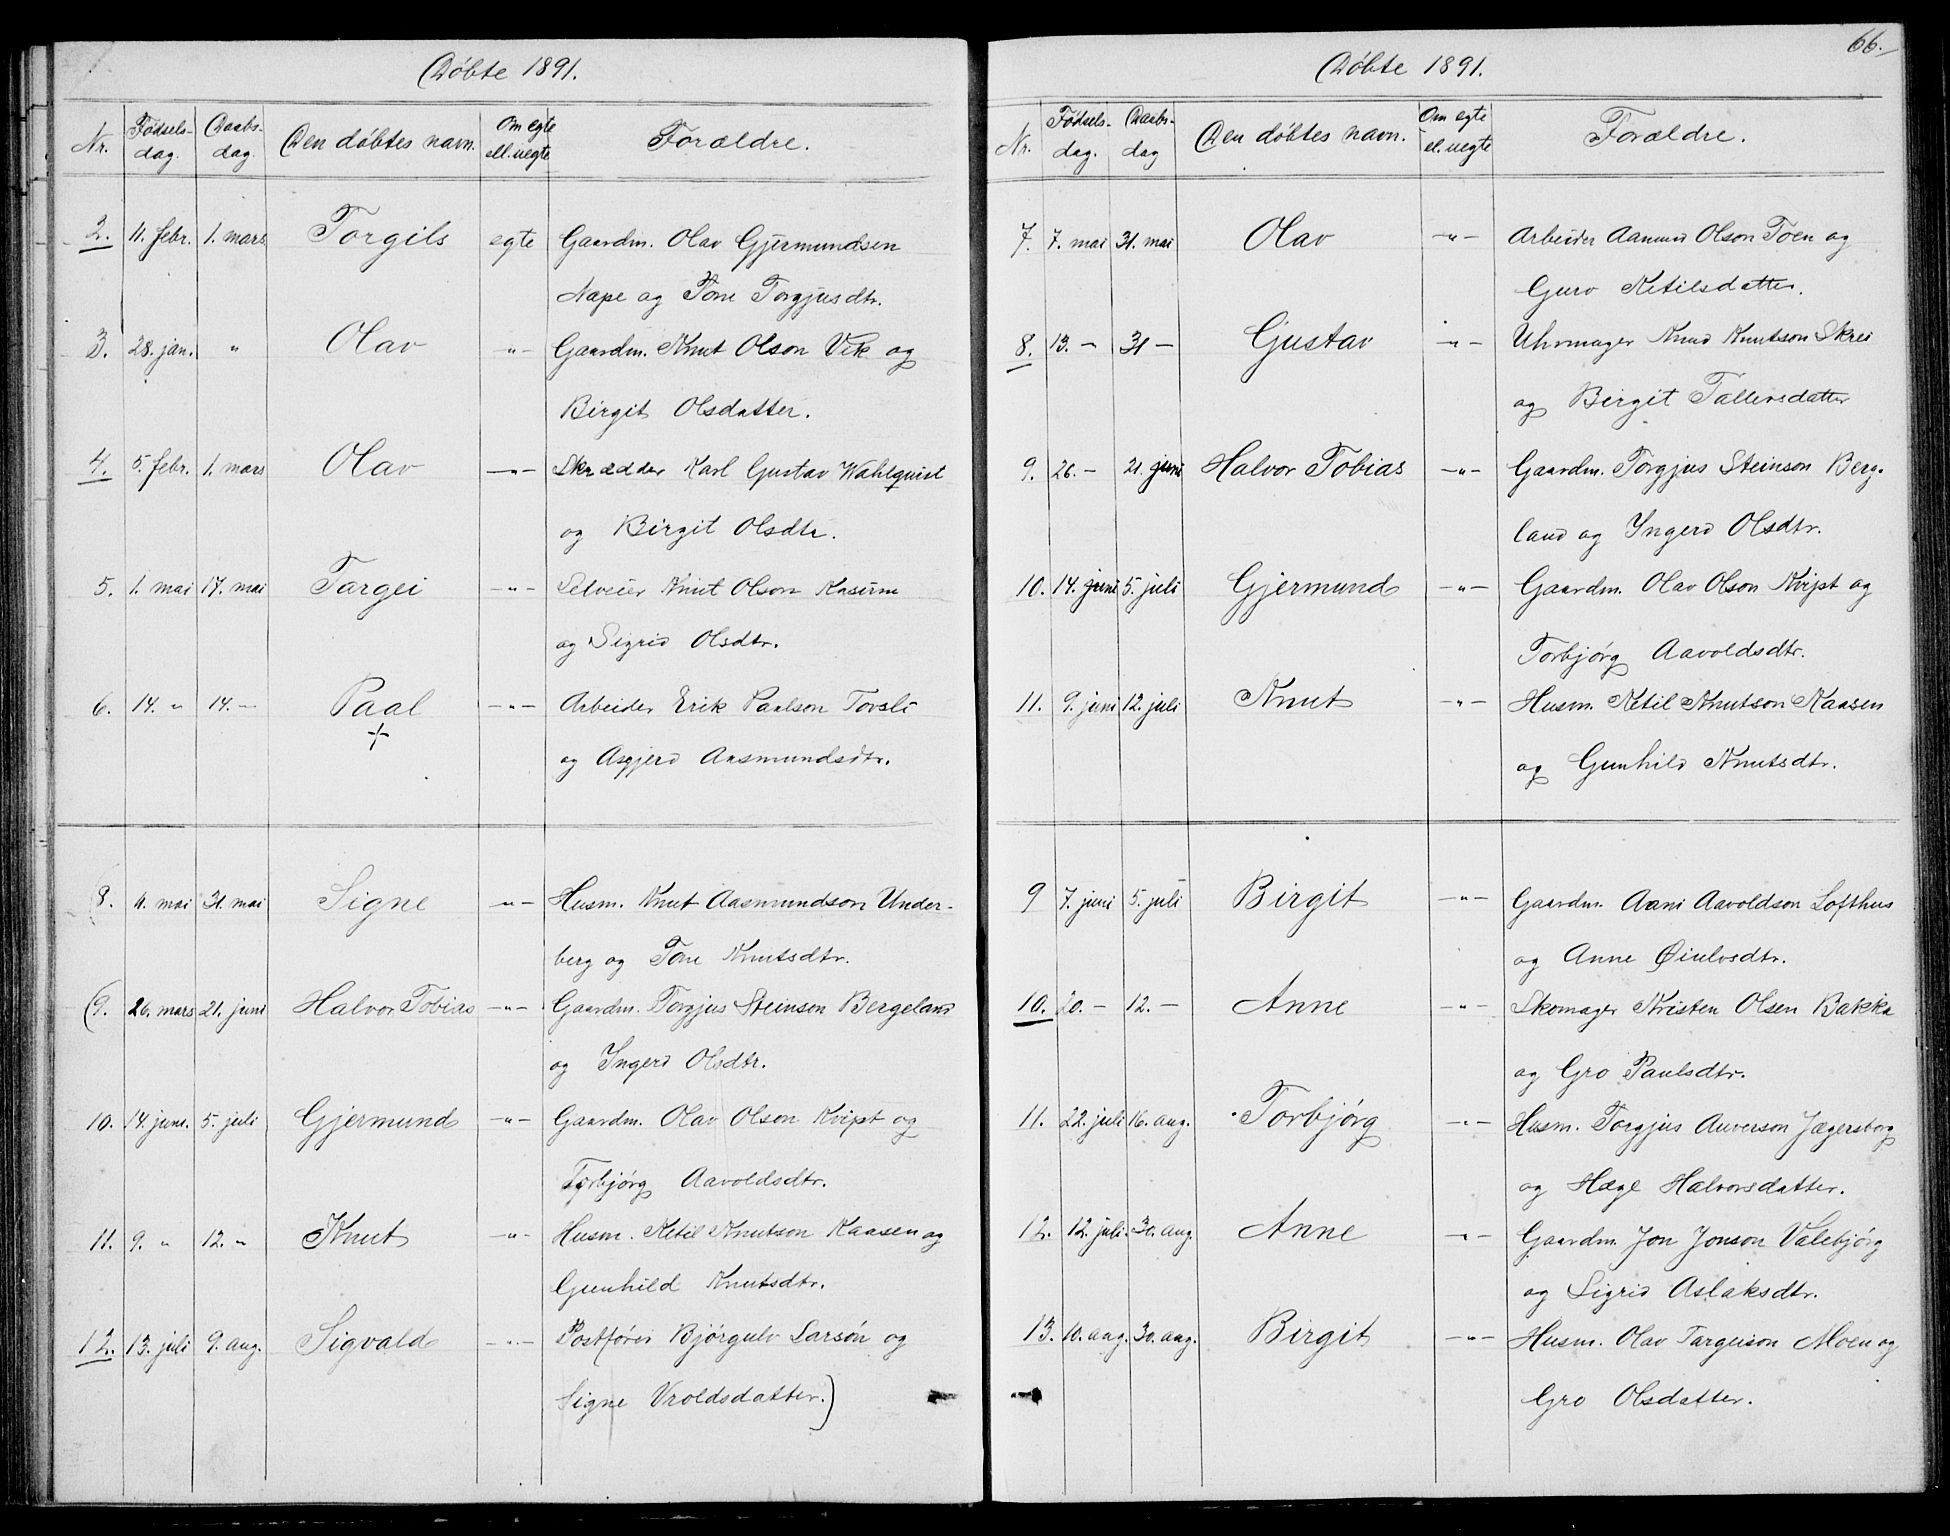 Døbte 1891.
Nr. Fødsels- dag. Daabs- dag. Den døbtes navn. Om egte ell. uegte Forældre.
2. 11. febr. 1. mars Torgils egte Gaardm. Olav Gjermundsen
Nape og Tone Torgjusdtr.
3. 28. jan. " Olav -"- Gaardm. Knut Olson Vik og
Birgit Olsdatter.
4. 5. febr. 1. mars Olav -"- Skrædder Karl Gustav Wahlquist
og Birgit Olsdtr.
5. 1. mai 17. mai Targei -"- Selveier Knut Olson
og Sigrid Olsdtr.
6. 14. " 14. - Paal -"- Arbeider Erik Paalson Torsli
+
og Asgjerd Aasmundsdtr.
(8. 11. mai 31. mai Signe -"- Husm. Knut Aasmundson Under-
berg og Tone Knutsdtr.
(9. 26. mars 21. juni Halvor Tobias -"- Gaardm. Torgjus Steinson Bergeland
og Ingerd Olsdtr.
10. 14. juni. 5. juli Gjermund -"- Gaardm. Olav Olson Kvipt og
Torbjørg Aavoldsdtr.
11. 9. " 12. " Knut -"- Husm. Ketil Knutson Kaasen og
Gunhild Knutsdtr.
12. 13. juli 9. aug. Sigvald -"- Postfører Bjørgulv Larsøn og
Signe Vroldsdatter.)
66.
Døbte 1891.
Nr. Fødsels- dag. Daabs- dag Den døbtes navn. Om egte el. uegte Forældre.
7. 7. mai 31. mai Olav -"- Arbeider Aanund Olson Toen og
Guro Ketilsdatter.
8. 13. - 31 - Gustav -"- Uhrmager Knud Knutson Skrei
og Birgit Tallevsdatter
9. 26. - 21. juni Halvor Tobias -"- Gaardm. Torgjus Steinson Berg-
land og Ingerd Olsdtr.
10. 14. juni 5. juli Gjermund -"- Gaardm. Olav Olson Kvipt og
Torbjørg Aavoldsdtr.
11. 9. juni 12. juli Knut -"- Husm. Ketil Knutson Kaasen
og Gunhild Knutsdtr.
9 7. juni 5. juli Birgit -"- Gaardm. Aani Aavoldson Lofthus
og Anne Øiulvsdtr.
10. 20. - 12. - Anne -"- Skomager Kristen Olsen Bakka
og Gro Paulsdtr.
11. 22. juli 16. aug. Torbjørg -"- Husm. Torgjus Auverson Jægersborg
og Hæge Halvorsdatter.
12. 12. juli. 30. aug. Anne -"- Gaardm. Jon Jonson Valebjørg
og Sigrid Aslaksdtr.
13. 10. aug. 30. aug. Birgit -"- Husm. Olav Targeison Moen og
Gro Olsdatter.